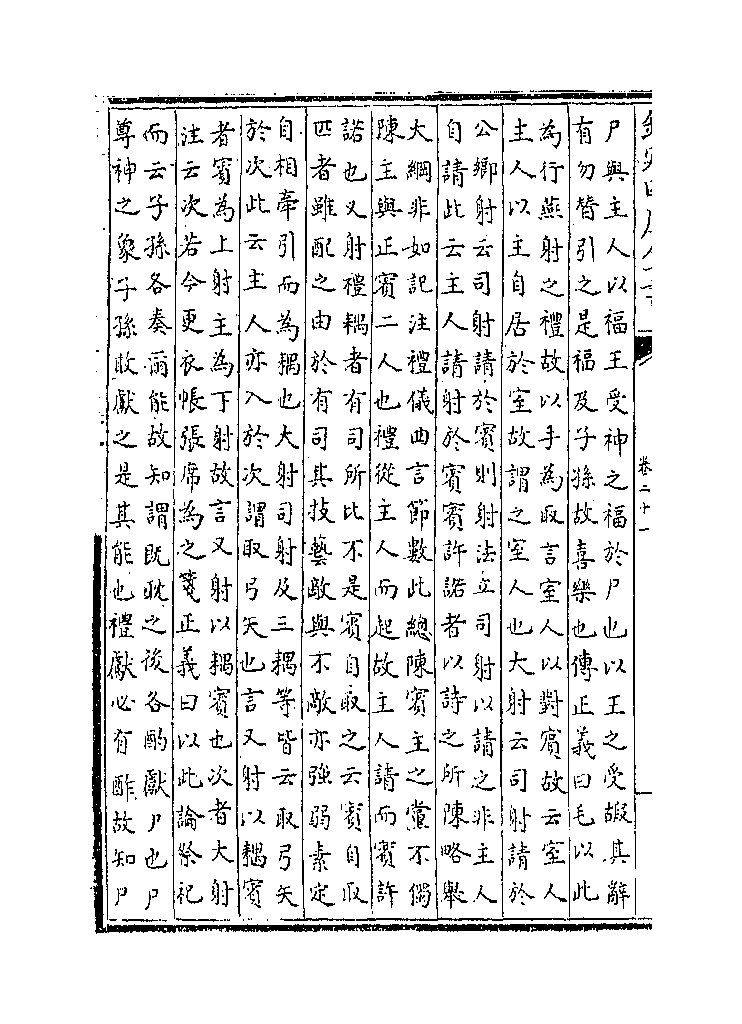 卷二十一
尸與主人以福王受神之福於尸也以王之受嘏其辭
有勿替引之是福及子孫故喜樂也傳正義曰毛以此
為行燕射之禮故以手為取言室人以對賓故云室人
主人以主自居於室故謂之室人也大射云司射請於
公鄉射云司射請於賓則射法立司射以請之非主人
自請此云主人請射於賓賓許諾者以詩之所陳略舉
大綱非如記注禮儀曲言節數此總陳賓主之黨不獨
陳主與正賓二人也禮從主人而起故主人請而賓許
諾也又射禮耦者有司所比不是賓自取之云賓自取
匹者雖配之由於有司其技藝敵與不敵亦強弱素定
自相牽引而為耦也大射司射及三耦等皆云取弓矢
於次此云主人亦入於次謂取弓矢也言又射以耦賓
者賓為上射主為下射故言又射以耦賓也次者大射
注云次若今更衣帳張席為之箋正義曰以此論祭祀
而云子孫各奏爾能故知謂既耽之後各酌獻尸也尸
尊神之象子孫敢獻之是其能也禮獻必有酢故知尸